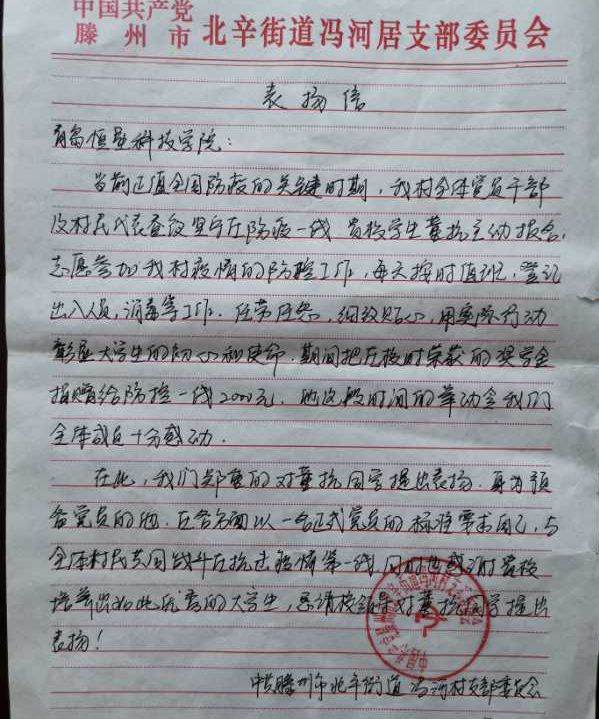 中国共产党
滕州市 北辛街道冯河居支部委员会
表扬信
青岛恒星科技学院:
当前正值全国防疫的关键时期,我村全体党员干部
及村民代表
坚守在防疫一线 贵校学生董抗主动报名,
志愿参加我村疫情的防控工作,每天按时值班,登记
出入人员,消毒等工作.任劳任怨,细致贴心,用实际行动
彰显大学生的初心和使命.期间把在校时荣获的奖学金
捐赠给防控一线2000元,他这段时间的举动令我们
全体成员十分感动.
在此,我们郑重的对董抗同学提出表扬.身为预
备党员的他.在各方面以一名正式党员的标准要求自己,与
全体村民共同战斗在抗过疫情第一线,同时也感谢贵校
培养出如此优秀的大学生,恳请校领导对董抗同学提出
表扬!
中共滕州市北辛街道冯河村支部委员会